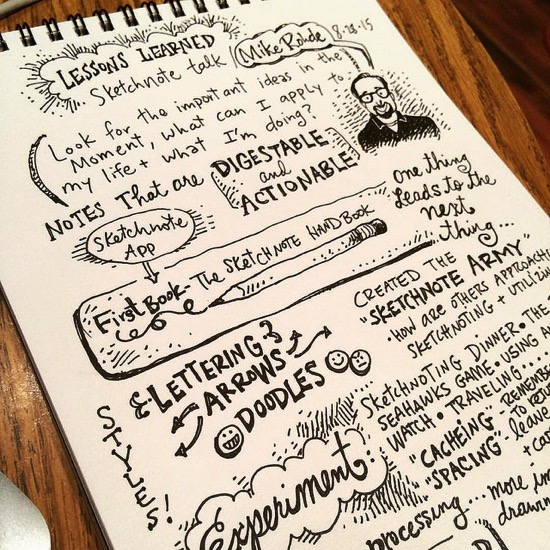 LESSONS LEARNED
Sketchnote talk
Mike Rohde
8-13-15
Look for the important ideas in the
Moment, what can I apply to
my life + what I'm doing?
NOTES That are DIGESTABLE
and
ACTIONABLE
Sketchnote
App
First Book - The SKETCHNOTE HANDBOOK
One thing
Leads to the
next
thing...
CREATED THE
"SKETCHNOTE ARMY"
• HOW ARE OTHERS APPROACHI
SKETCHNOTING + UTILIZI
& LETTERING
ARROWS
DOODLES
STYLES!
SKETCHNOTING DINNER • THE
SEAHAWKS GAME • USING A
WATCH • TRAVELING....
"CACHEING" - REMEMBE
"SPACING" TO
leave
+ ca
Experiment:
processing... more im
drawn